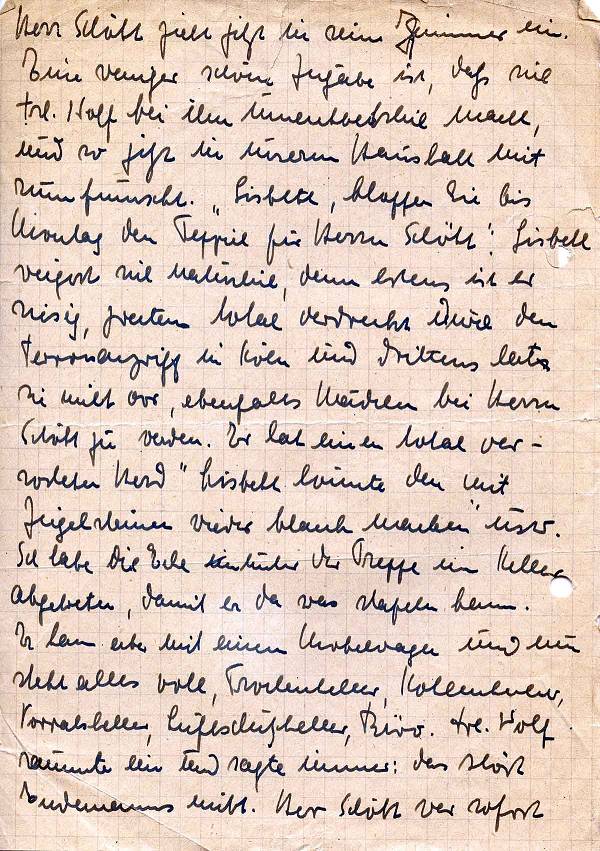 Herr Schött zieht jetzt in sein Zimmer ein.
Eine weniger schöne Zugabe ist, daß sie
Frl. Wolf bei ihm unentbehrlich macht,
und so jetzt in unserem Haushalt mit
rumfunscht. „Lisbeth, kloppen Sie bis
Montag den Teppich für Herrn Schött". Lisbeth
weigert sich natürlich, denn erstens ist er
riesig, zweitens total verdreckt durch den
Terrorangriff in Köln und drittens hatte
sie nicht vor, ebenfalls Mädchen bei Herrn
Schött zu werden. Er hat einen total ver-
rosteten Herd „Lisbeth könnte den mit
Ziegelsteinen wieder blank machen" usw.
Ich habe die Ecke hinter der Treppe im Keller
abgetreten, damit er da was stapeln kann.
Er kam aber mit einem Möbelwagen und nun
steht alles voll, Trockenkeller, Kohlenkeller,
Vorratskeller, Luftschutzkeller, Büro. Frl. Wolf
räumte ein und sagte immer: das stört
Endemanns nicht. Herr Schött war sofort